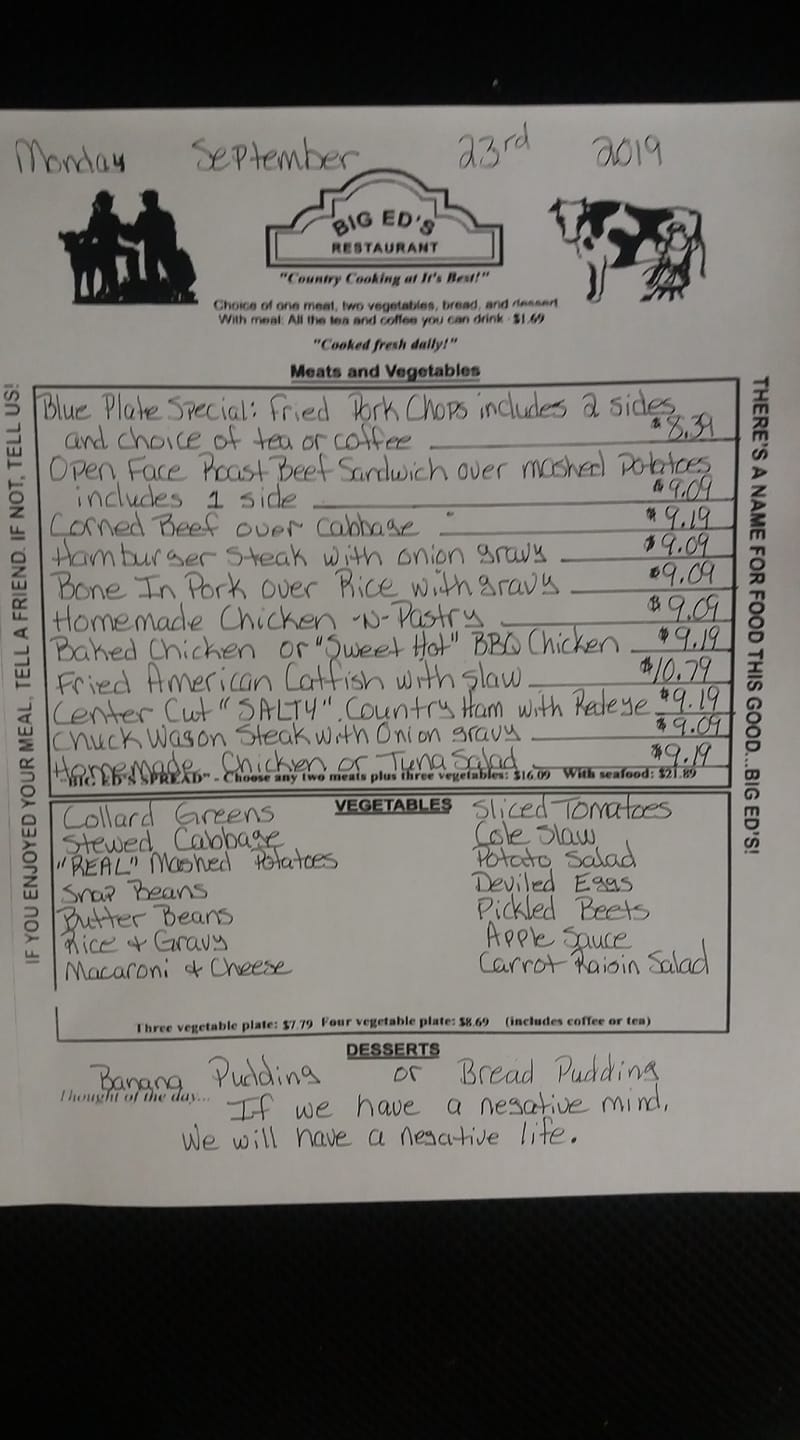 Monday September 23rd 2019
BIG ED'S
RESTAURANT
"Country Cooking at It's Best!"
Choice of one meat, two vegetables, bread, and dessert
With meal: All the tea and coffee you can drink - $1.69
"Cooked fresh daily!"
Meats and Vegetables
Blue Plate Special: Fried Pork Chops includes 2 sides
and choice of tea or coffee $8.39
Open Face Roast Beef Sandwich over mashed Potatoes
includes 1 side $9.09
Corned Beef over Cabbage $9.19
Hamburger Steak with onion gravy $9.09
Bone In Pork over Rice with gravy $9.09
Homemade Chicken -N- Pastry $9.09
Baked Chicken or "Sweet Hot" BBQ Chicken $9.19
Fried American Catfish with slaw $10.79
Center Cut "SALTY" Country Ham with Redeye $9.19
Chuck Wagon Steak with Onion gravy $9.09
Homemade Chicken or Tuna Salad $9.19
"BIG ED'S SPREAD" - Choose any two meats plus three vegetables: $16.09 With seafood: $21.89
VEGETABLES
Collard Greens
Stewed Cabbage
"REAL" Mashed Potatoes
Snap Beans
Butter Beans
Rice & Gravy
Macaroni & Cheese
Sliced Tomatoes
Cole Slaw
Potato Salad
Deviled Eggs
Pickled Beets
Apple Sauce
Carrot Raisin Salad
Three vegetable plate: $7.79 Four vegetable plate: $8.69 (includes coffee or tea)
DESSERTS
Banana Pudding or Bread Pudding
Thought of the day...
If we have a negative mind,
We will have a negative life.
IF YOU ENJOYED YOUR MEAL, TELL A FRIEND. IF NOT, TELL US!
THERE'S A NAME FOR FOOD THIS GOOD...BIG ED'S!